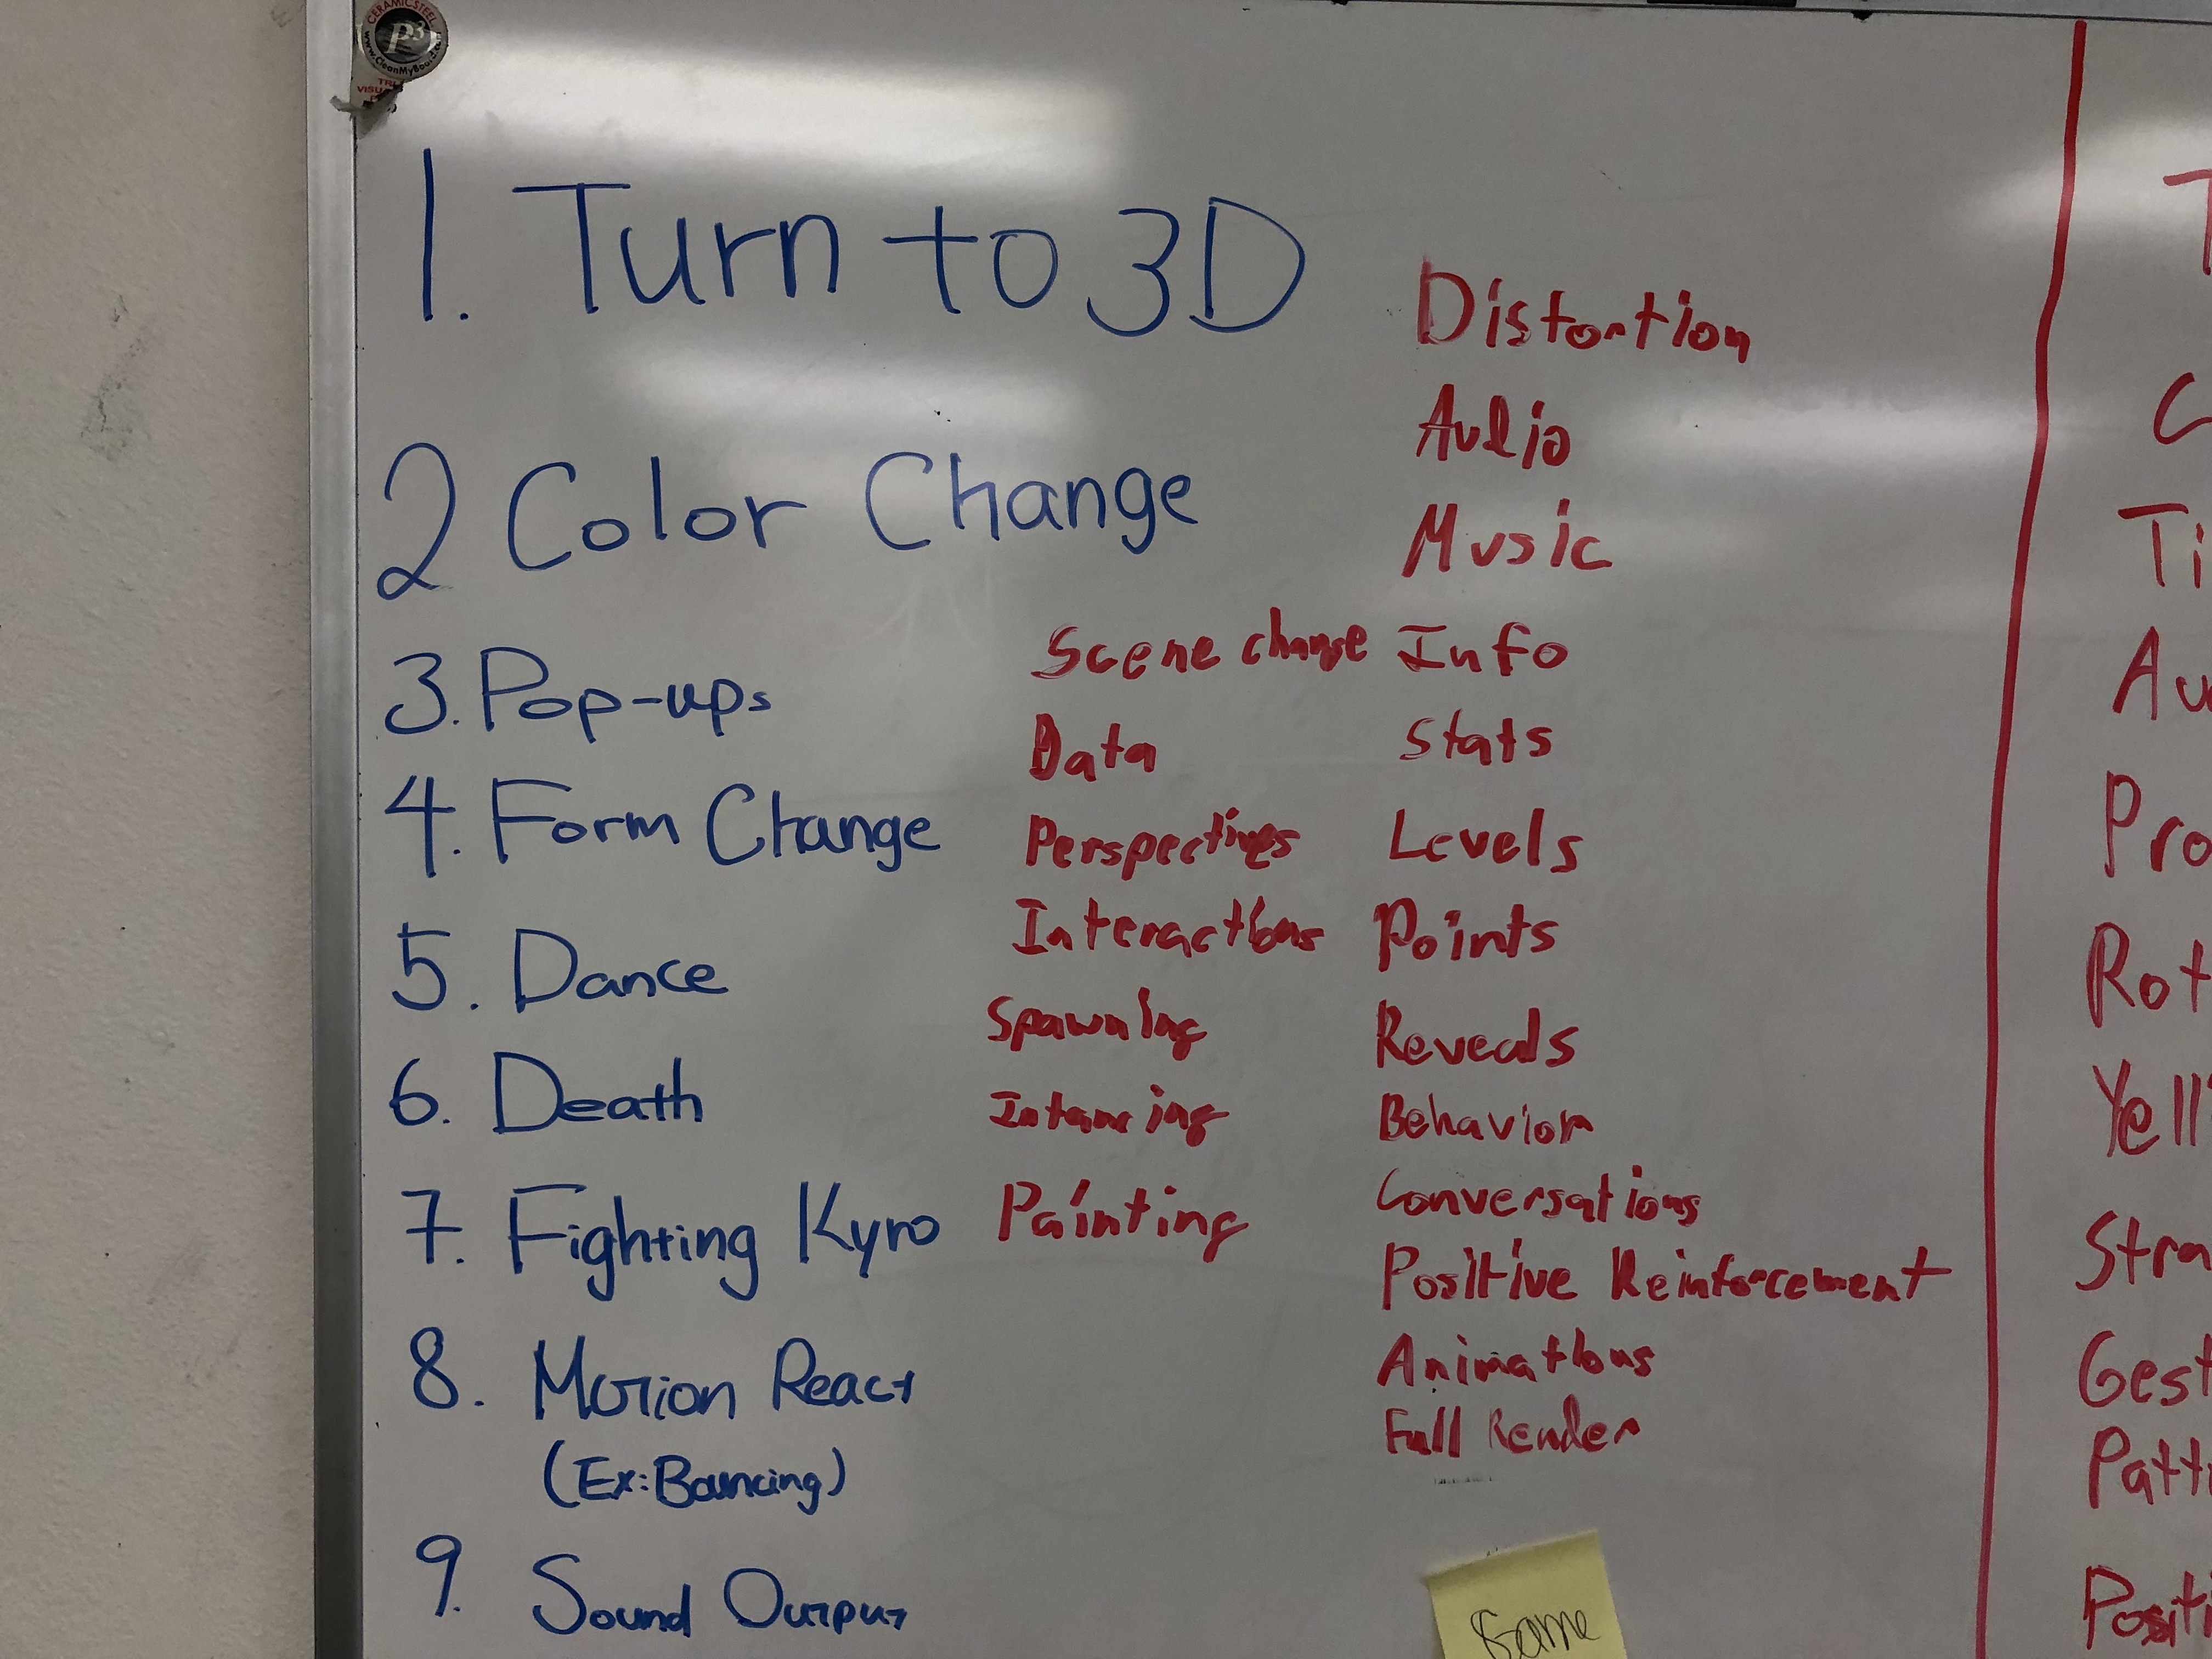 CERAMICSTEEL
P3
www.CleanMyBoard.com
1. Turn to 3D
2 Color Change
3. Pop-ups
4. Form Change
5. Dance
6. Death
7. Fighting Kyro
8. Motion React
(Ex: Bouncing)
9. Sound Output
Scene change
Data
Perspectives
Interactions
Spawning
Intancing
Painting
Distortion
Audio
Music
Info
Stats
Levels
Points
Reveals
Behavior
Conversations
Positive Reinforcement
Animations
Full Render
Game
T
C
Ti
Au
Pro
Rot
Yell
Stra
Gest
Patt
Positi